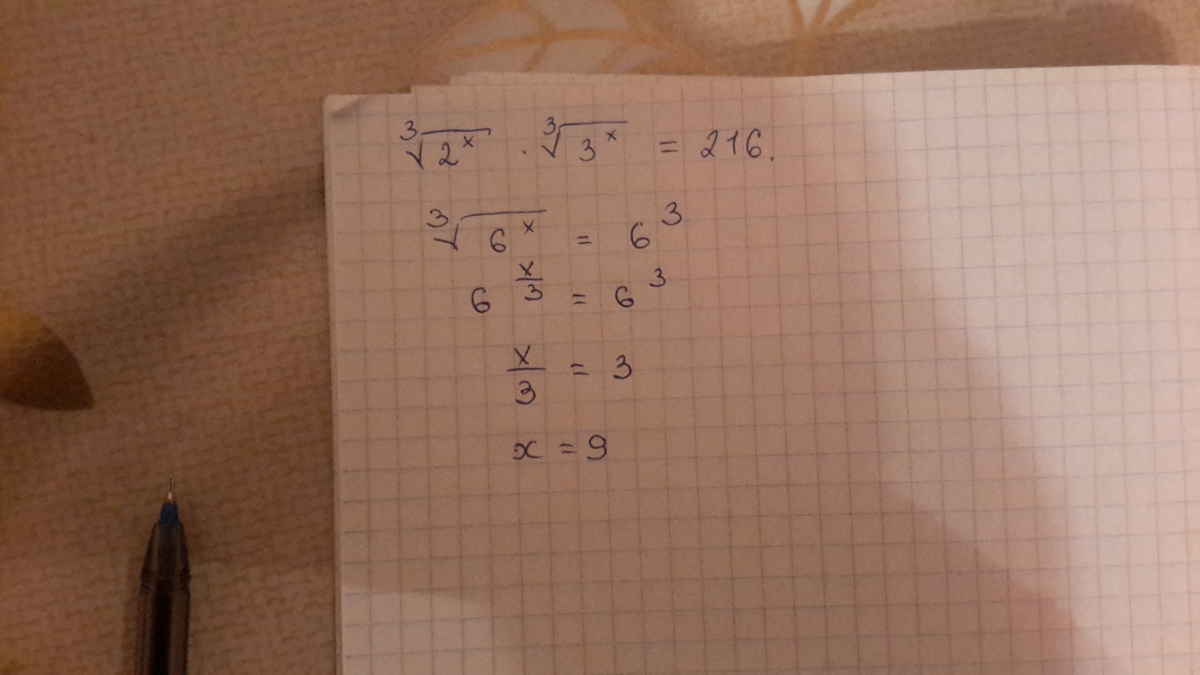 ∛(2^x) · ∛(3^x) = 216.
∛(6^x) = 6^3
6^(x/3) = 6^3
x/3 = 3
x = 9